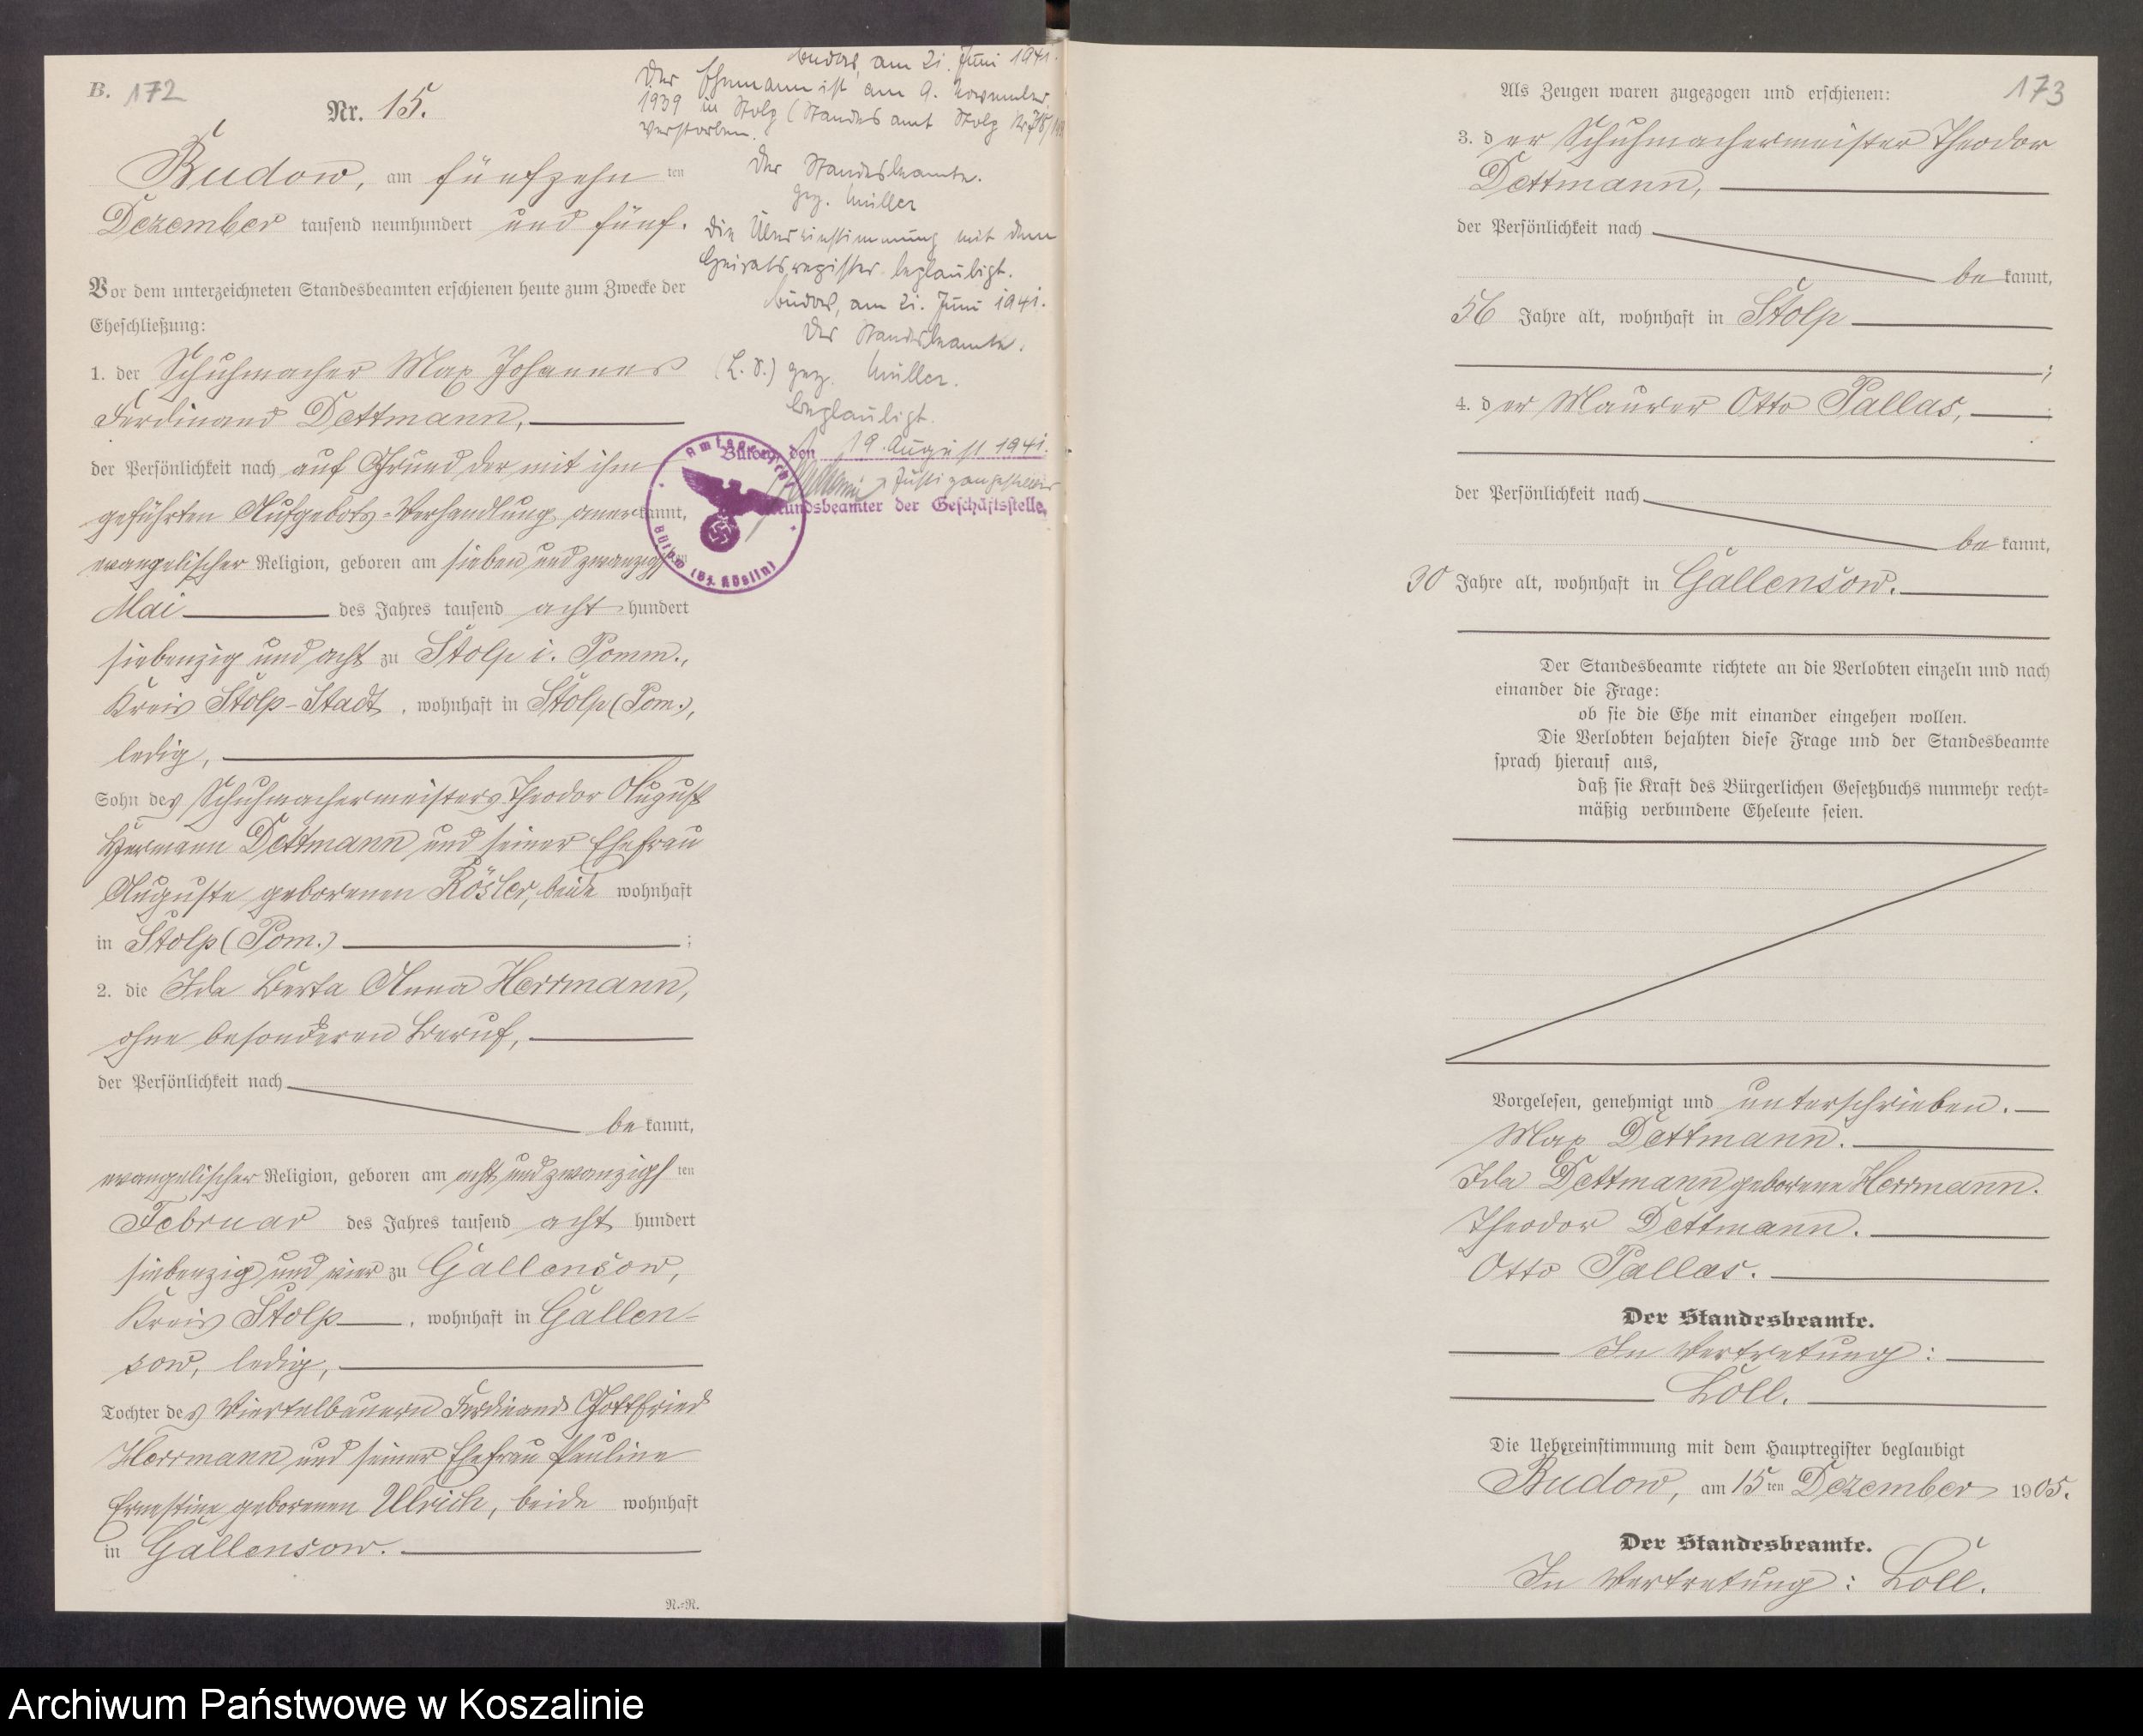 B. 172
Nr. 15.
Budow, am fünfzehn ten
Dezember tausend neunhundert und fünf.
Vor dem unterzeichneten Standesbeamten erschienen heute zum Zwecke der
Eheschließung:
1. der Schuhmacher Max Johannes
Ferdinand Dettmann,
der Persönlichkeit nach auf Grund der mit ihm
geführten Aufgebots-Verhandlung anerkannt,
evangelischer Religion, geboren am sieben und zwanzigsten
Mai des Jahres tausend acht hundert
siebenzig und acht zu Stolp i. Pomm.,
Kreis Stolp-Stadt, wohnhaft in Stolp (Pom.),
ledig,
Sohn des Schuhmachermeisters Theodor August
Hermann Dettmann und seiner Ehefrau
Auguste geborenen Rösler, beide wohnhaft
in Stolp (Pom.) ;
2. die Ida Berta Anna Herrmann,
ohne besonderen Beruf,
der Persönlichkeit nach
be kannt,
evangelischer Religion, geboren am acht und zwanzigsten
Februar des Jahres tausend acht hundert
siebenzig und vier zu Gallensow,
Kreis Stolp, wohnhaft in Gallen-
sow, ledig,
Tochter des Viertelbauern Ferdinand Gottfried
Herrmann und seiner Ehefrau Pauline
Ernestine geborenen Ulrich, beide wohnhaft
in Gallensow.
N.=N.
Budow, am 21. Juni 1941.
Der Ehemann ist am 9. November
1939 in Stolp (Standesamt Stolp Nr.
verstorben.
Der Standesbeamte.
gez. Müller
Die Übereinstimmung mit dem
Heiratsregister beglaubigt.
Budow, am 21. Juni 1941.
Der Standesbeamte.
(L. S.) gez. Müller.
Beglaubigt.
Bütow, den 19. August 1941.
Justizangestellter
Urkundsbeamter der Geschäftsstelle.
Amtsgericht
Bütow (Bz. Köslin)
173
Als Zeugen waren zugezogen und erschienen:
3. der Schuhmachermeister Theodor
Dettmann,
der Persönlichkeit nach
be kannt,
56 Jahre alt, wohnhaft in Stolp
;
4. der Maurer Otto Pallas,
der Persönlichkeit nach
be kannt,
30 Jahre alt, wohnhaft in Gallensow.
Der Standesbeamte richtete an die Verlobten einzeln und nach
einander die Frage:
ob sie die Ehe mit einander eingehen wollen.
Die Verlobten bejahten diese Frage und der Standesbeamte
sprach hierauf aus,
daß sie Kraft des Bürgerlichen Gesetzbuchs nunmehr recht=
mäßig verbundene Eheleute seien.
Vorgelesen, genehmigt und unterschrieben.
Max Dettmann.
Ida Dettmann geborene Herrmann.
Theodor Dettmann.
Otto Pallas.
Der Standesbeamte.
In Vertretung:
Loll.
Die Uebereinstimmung mit dem Hauptregister beglaubigt
Budow, am 15 ten Dezember 1905.
Der Standesbeamte.
In Vertretung: Loll.
Archiwum Państwowe w Koszalinie